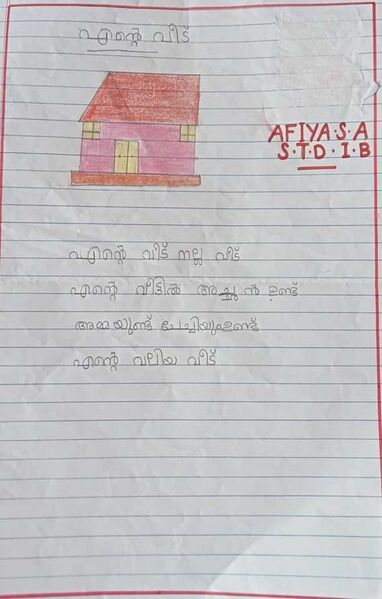 എന്റെ വീട്
AFIYA.S.A
S.T.D.I.B
എന്റെ വീട് നല്ല വീട്
എന്റെ വീട്ടിൽ അച്ഛൻ ഉണ്ട്
അമ്മയുണ്ട് ചേച്ചിയുംഉണ്ട്
എന്റെ വലിയ വീട്